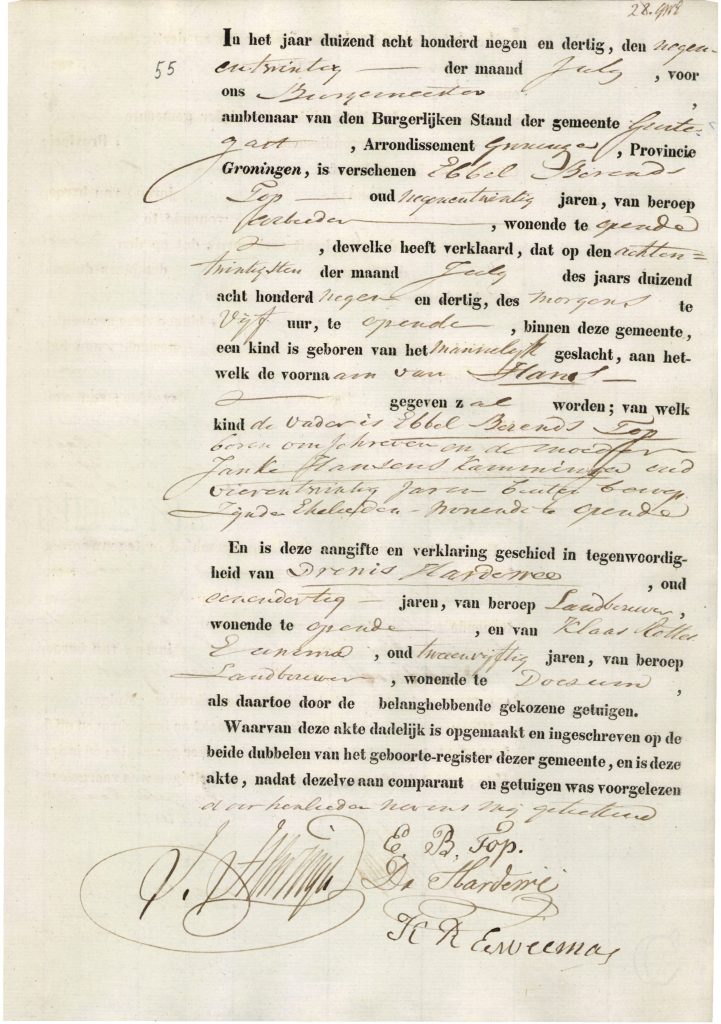 55
In het jaar duizend acht honderd negen en dertig, den negen-
entwintig der maand July, voor
ons Burgemeester,
ambtenaar van den Burgerlijken Stand der gemeente Groote-
gast, Arrondissement Groningen, Provincie
Groningen, is verschenen Ebbel Berends
Top oud negenentwintig jaren, van beroep
, wonende te opende
, dewelke heeft verklaard, dat op den achten=
twintigsten der maand July des jaars duizend
acht honderd negen en dertig, des morgens te
Vijf uur, te opende, binnen deze gemeente,
een kind is geboren van het mannelijk geslacht, aan het-
welk de voornaam van Hans
gegeven zal worden; van welk
kind de vader is Ebbel Berends Top
boven omschreven en de moeder
Janke Hansens Kamminga oud
vierentwintig Jaren buiten beroep
Zijnde Ehelieden - wonende te opende
En is deze aangifte en verklaring geschied in tegenwoordig-
heid van Drenis Hardewee, oud
eenendertig jaren, van beroep Landbouwer,
wonende te opende, en van Klaas
, oud tweenvijftig jaren, van beroep
Landbouwer, wonende te Doezum,
als daartoe door de belanghebbende gekozene getuigen.
Waarvan deze akte dadelijk is opgemaakt en ingeschreven op de
beide dubbelen van het geboorte-register dezer gemeente, en is deze
akte, nadat dezelve aan comparant en getuigen was voorgelezen
door henlieden nevens mij getekend
E. B. Top.